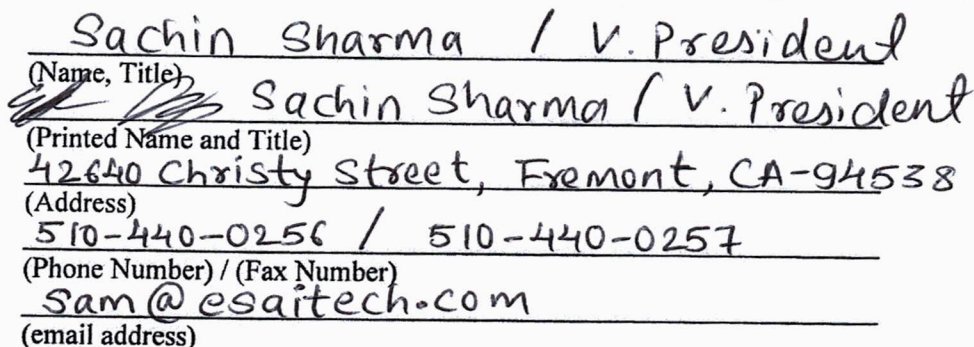 Sachin Sharma / V. President
(Name, Title)
Sachin Sharma / V. President
(Printed Name and Title)
42640 Christy Street, Fremont, CA-94538
(Address)
510-440-0256 / 510-440-0257
(Phone Number) / (Fax Number)
sam@esaitech.com
(email address)